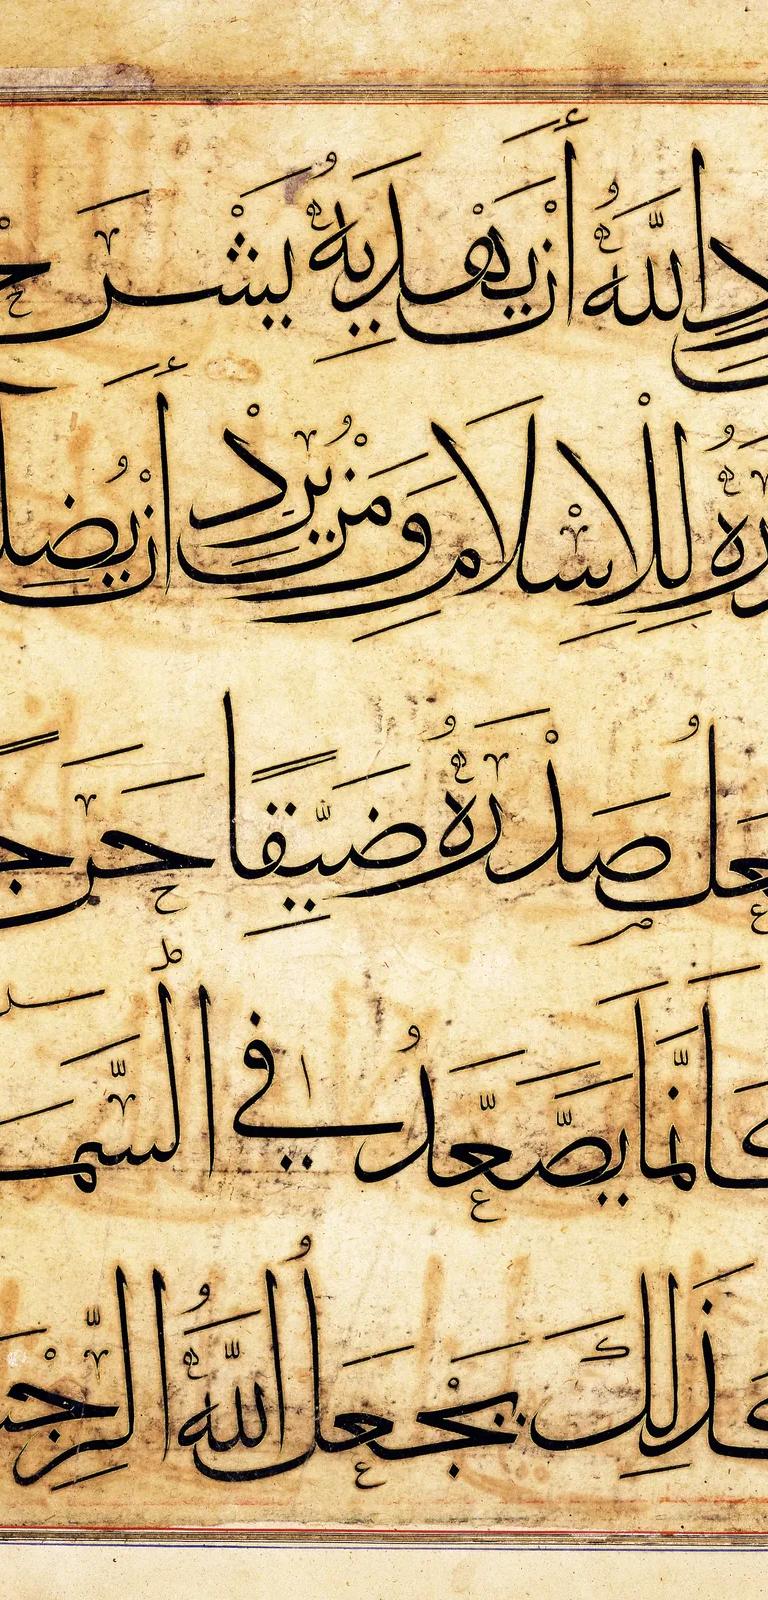 دِ اللَّهُ أَنْ يَهْدِيَهُ يَشْرَحْ
رَهُ لِلْإِسْلَامِ وَمَنْ يُرِدْ أَنْ يُضِلَّ
عَلُ صَدْرَهُ ضَيِّقًا حَرَجًا
كَأَنَّمَا يَصَّعَّدُ فِي السَّمَا
كَذَلِكَ يَجْعَلُ اللَّهُ الرِّجْسَ